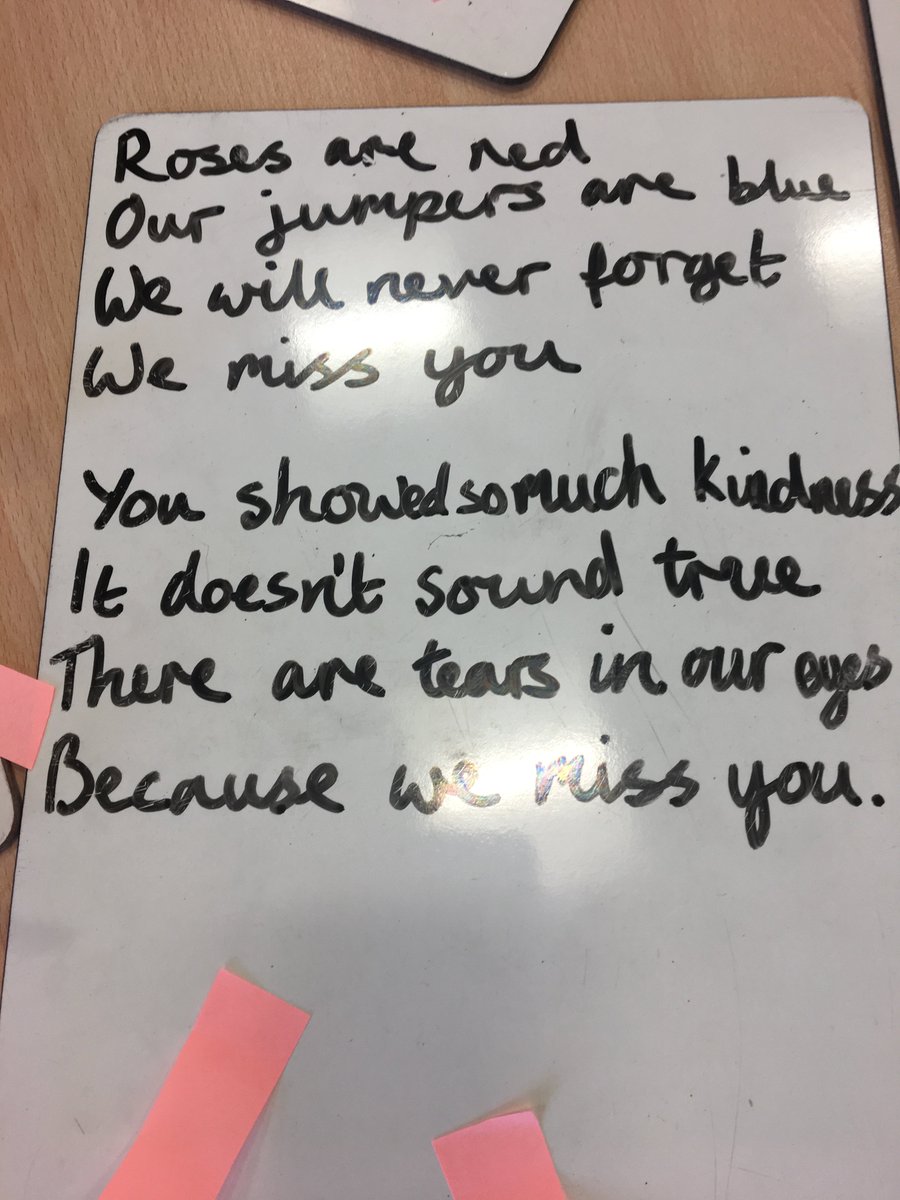 Roses are red
Our jumpers are blue
We will never forget
We miss you
You showed so much kindness
It doesn't sound true
There are tears in our eyes
Because we miss you.